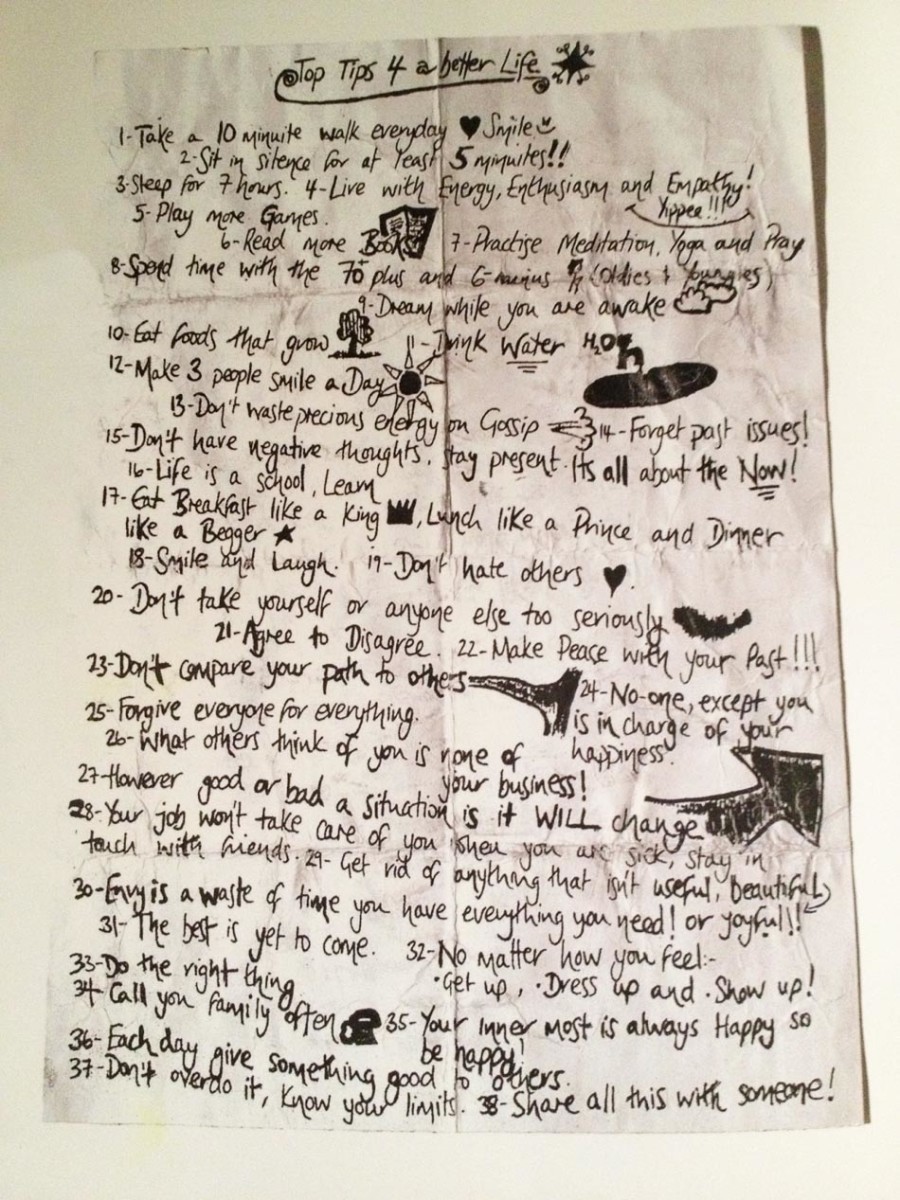 Top Tips 4 a better Life
1-Take a 10 minuite walk everyday ♥ Smile
2-Sit in silence for at least 5 minuites!!
3-Sleep for 7 hours. 4-Live with Energy, Enthusiasm and Empathy!
Yippee!!!
5-Play more Games.
6-Read more Books 7-Practise Meditation, Yoga and Pray
8-Spend time with the 70+ plus and 6-minus (Oldies & Youngies)
9-Dream while you are awake
10-Eat foods that grow 11-Drink Water H2O
12-Make 3 people smile a Day
13-Don't waste precious energy on Gossip 14-Forget past issues!
15-Don't have negative thoughts, stay present. Its all about the Now!
16-Life is a school, Learn
17-Eat Breakfast like a King, Lunch like a Prince and Dinner
like a Begger ★
18-Smile and Laugh. 19-Don't hate others ♥.
20-Don't take yourself or anyone else too seriously
21-Agree to Disagree. 22-Make Peace with your Past!!!
23-Don't compare your path to others
24-No-one, except you
is in charge of your
happiness.
25-Forgive everyone for everything.
26-What others think of you is none of
your business!
27-However good or bad a situation is it WILL change
28-Your job won't take care of you when you are sick, stay in
touch with friends. 29-Get rid of anything that isn't useful, beautiful
or joyful!!
30-Envy is a waste of time you have everything you need!
31-The best is yet to come. 32-No matter how you feel:-
·Get up, ·Dress up and ·Show up!
33-Do the right thing
34-Call you family often 35-Your inner most is always Happy so
be happy!
36-Each day give something good to others.
37-Don't overdo it, Know your limits. 38-Share all this with someone!